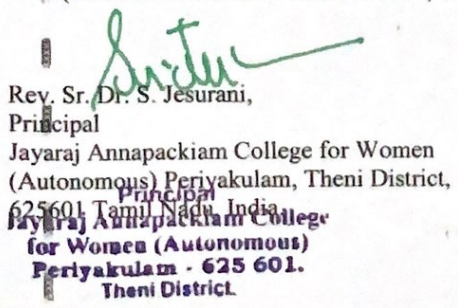 Rev. Sr. Dr. S. Jesurani,
Principal
Jayaraj Annapackiam College for Women
(Autonomous) Periyakulam, Theni District,
625601 Tamil Nadu, India
Principal
Jayaraj Annapackiam College
for Women (Autonomous)
Periyakulam - 625 601.
Theni District.